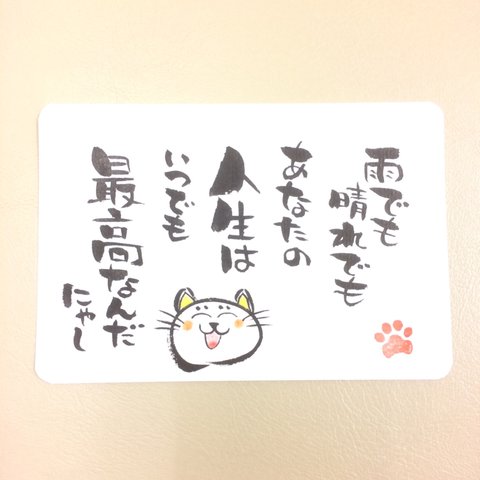 雨でも
晴れでも
あなたの
人生は
いつでも
最高なんだ
にゃし